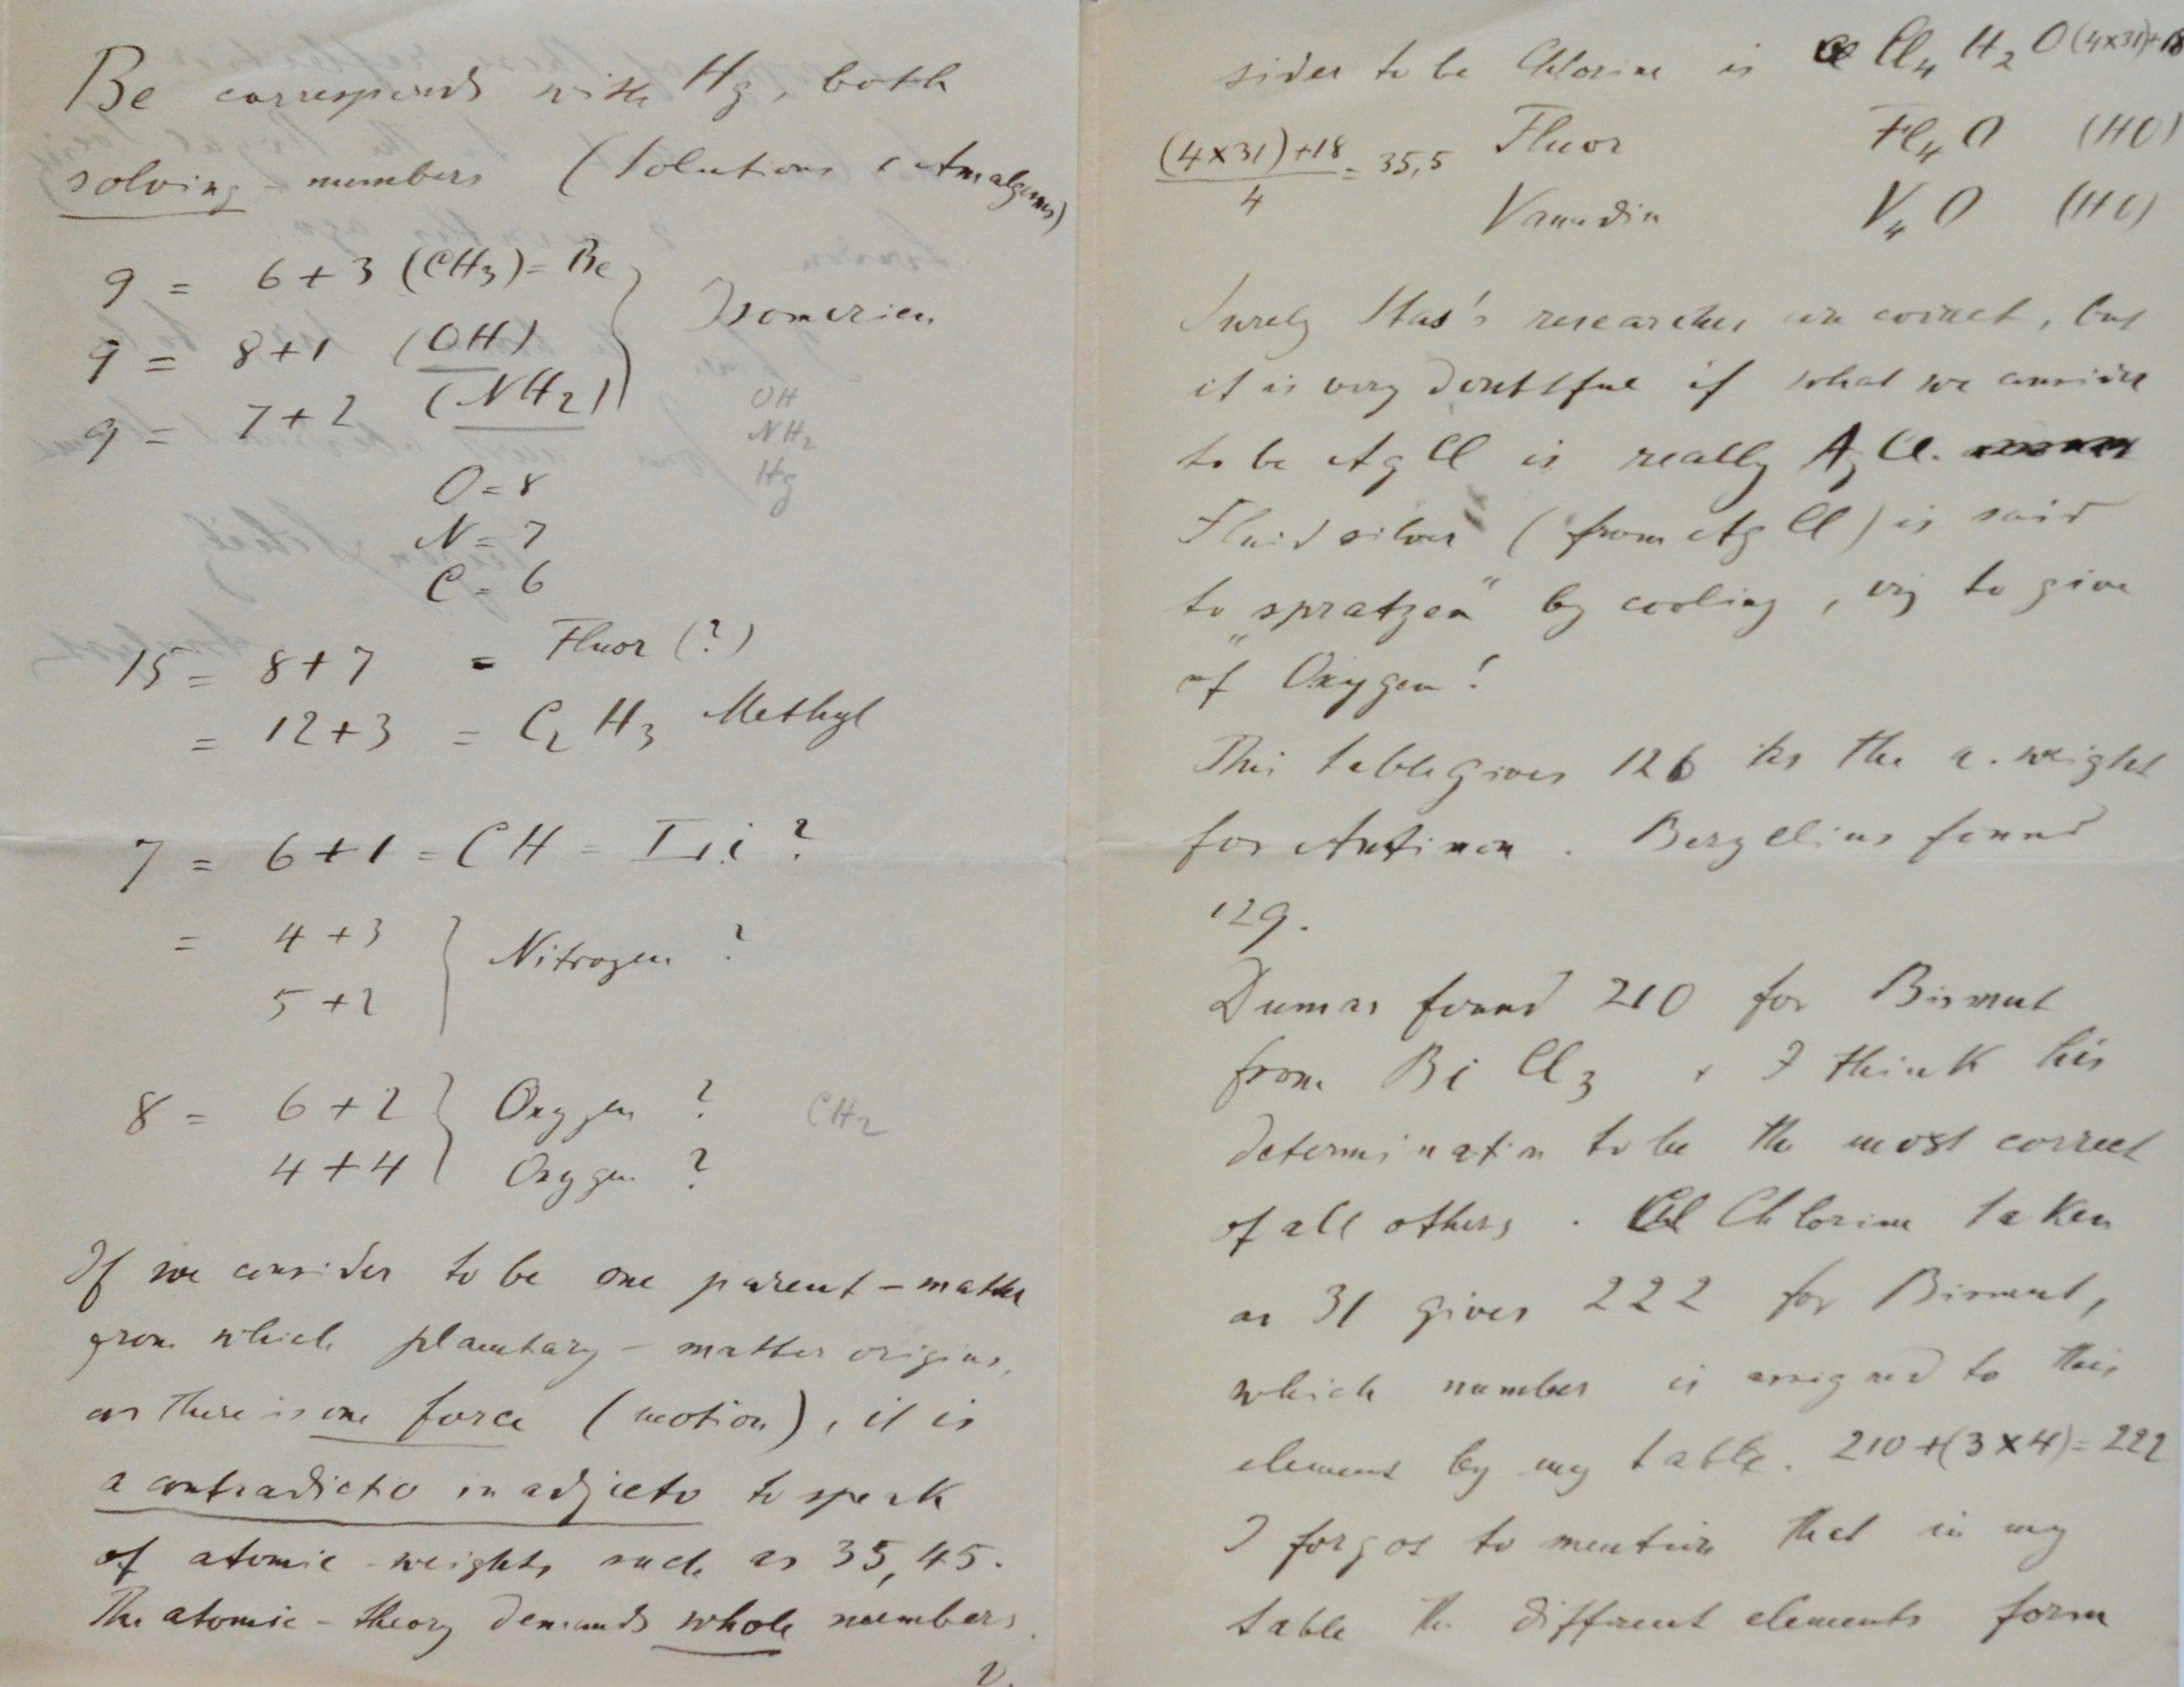 Be corresponds with Hg, both
solving - numbers (Solutions & Amalgams)
9 = 6 + 3 (CH3) = Be
9 = 8+1 (OH)
Isomerien
9 = 7+2 (NH2)
OH
NH2
Hg
O = 8
N = 7
C = 6
15 = 8+7 = Fluor (?)
= 12+3 = C2 H3 Methyl
7 = 6+1 = CH = Li ?
= 4+3
Nitrogen ?
5+2
8 = 6+2 Oxygen ? CH2
4+4 Oxygen ?
If we consider to be one parent-matter
from which planetary - matter origins,
as there is one force (motion), it is
a contradictio in adjecto to speak
of atomic - weights such as 35,45.
The atomic - theory demands whole numbers.
v.
sider to be Chlorine is Cl4 H2 O (4x31)+18
Fluor Fl4 O (HO)
(4x31)+18 / 4 = 35,5
Vanadin V4 O (HO)
Surely Stas's researches are correct, but
it is very doubtful if what we consider
to be Ag Cl is really Ag Cl.
Fluid silver (from Ag Cl) is said
to "spratzen" by cooling, viz to give
of Oxygen!
This table gives 126 as the a. weight
for Antimon. Berzelius found
129.
Dumas found 210 for Bismut
from Bi Cl3 & I think his
determination to be the most correct
of all others. Chlorine taken
as 31 gives 222 for Bismut,
which number is assigned to this
element by my table. 210+(3x4)=222
I forgot to mention that in my
table the different elements form